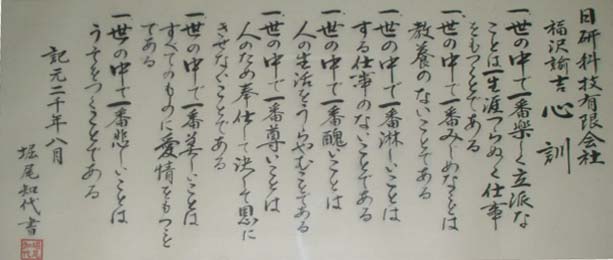 日研科技有限会社
福沢諭吉 心訓
一、世の中で一番楽しく立派な
ことは一生涯つらぬく仕事
をもつことである
一、世の中で一番みじめなことは
教養のないことである
一、世の中で一番淋しいことは
する仕事のないことである
一、世の中で一番醜いことは
人の生活をうらやむことである
一、世の中で一番尊いことは
人のため奉仕して決して恩に
きせないことである
一、世の中で一番美しいことは
すべてのものに愛情をもつこと
である
一、世の中で一番悲しいことは
うそをつくことである
記元二千年八月
堀尾知代書